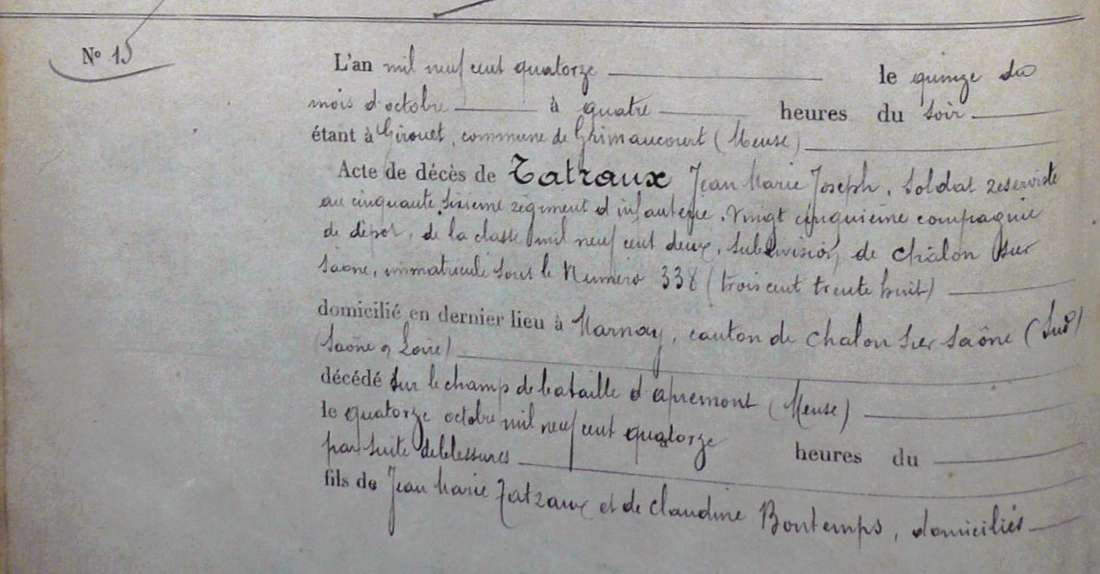 N° 15
L'an mil neuf cent quatorze le quinze du
mois d'octobre à quatre heures du soir
étant à Girouet, commune de Grimaucourt (Meuse)
Acte de décès de Tatraux Jean Marie Joseph, soldat reserviste
au cinquante sixieme regiment d'infanterie, vingt cinquieme compagnie
de dépot, de la classe mil neuf cent deux, subdivision de Châlon sur
Saone, immatriculé sous le Numéro 338 (trois cent trente huit)
domicilié en dernier lieu à Marnay, canton de Chalon sur Saône (Sud)
(Saône & Loire)
décédé sur le champ de bataille d'apremont (Meuse)
le quatorze octobre mil neuf cent quatorze heures du
par suite de blessures
fils de Jean Marie Tatraux et de Claudine Bontemps, domiciliés